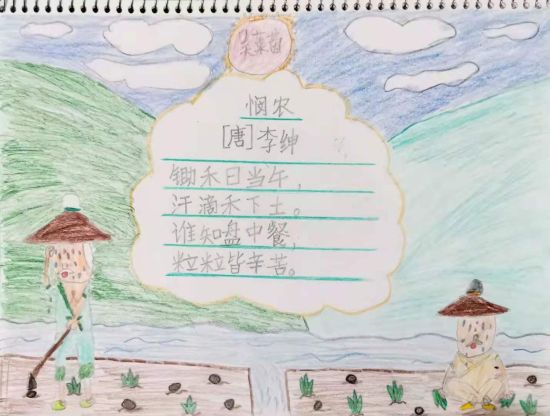 悯农
[唐]李绅
锄禾日当午,
汗滴禾下土。
谁知盘中餐,
粒粒皆辛苦。